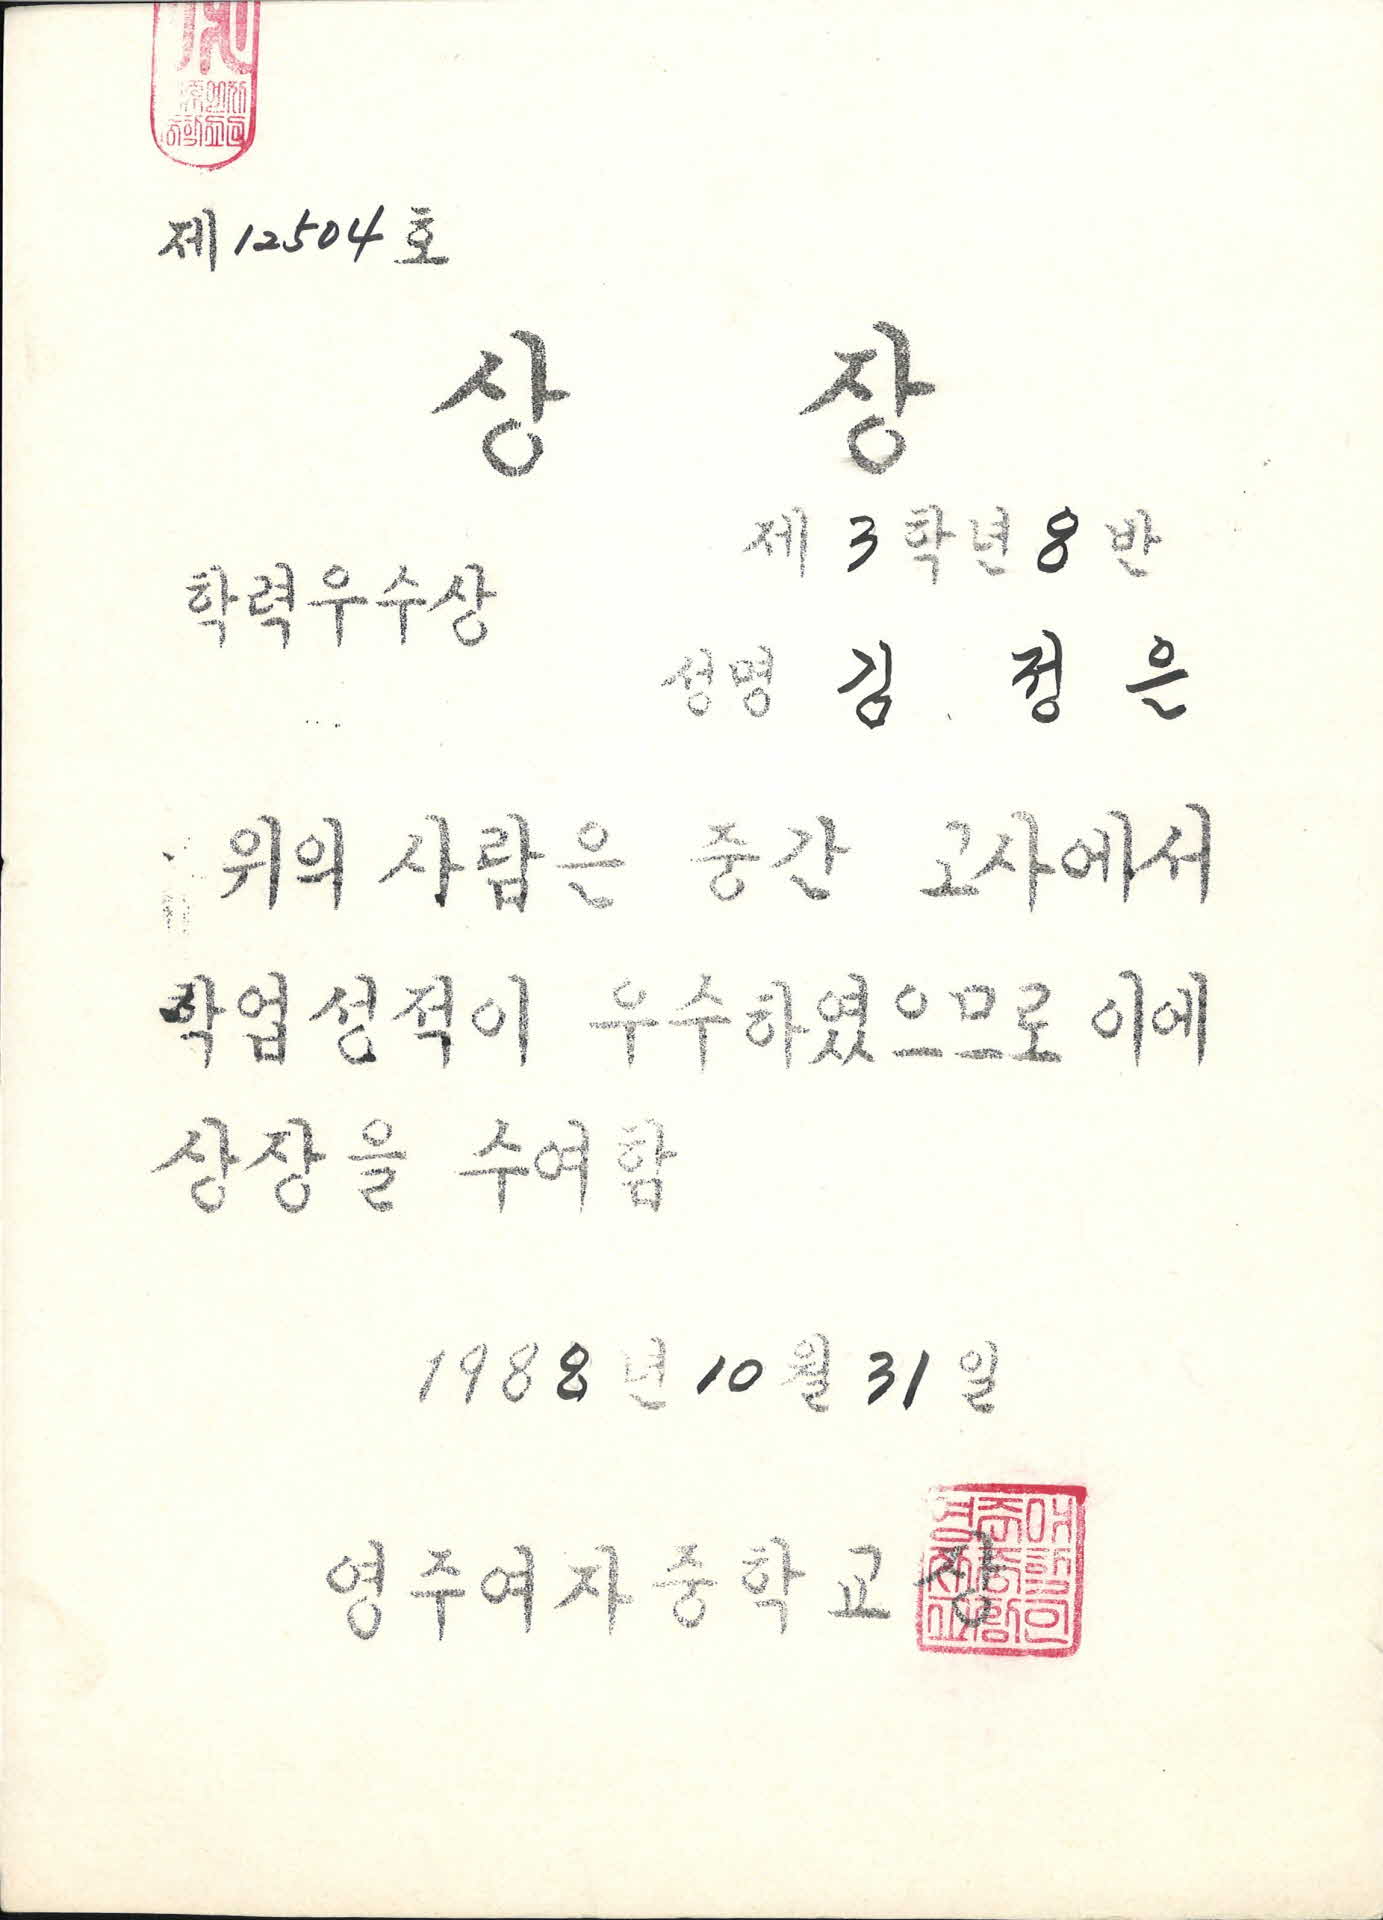 제 12504 호
상 장
제 3 학년 8 반
학력우수상
성명 김 정 은
위의 사람은 중간 고사에서
학업성적이 우수하였으므로 이에
상장을 수여함
1988 년 10 월 31 일
영주여자중학교장